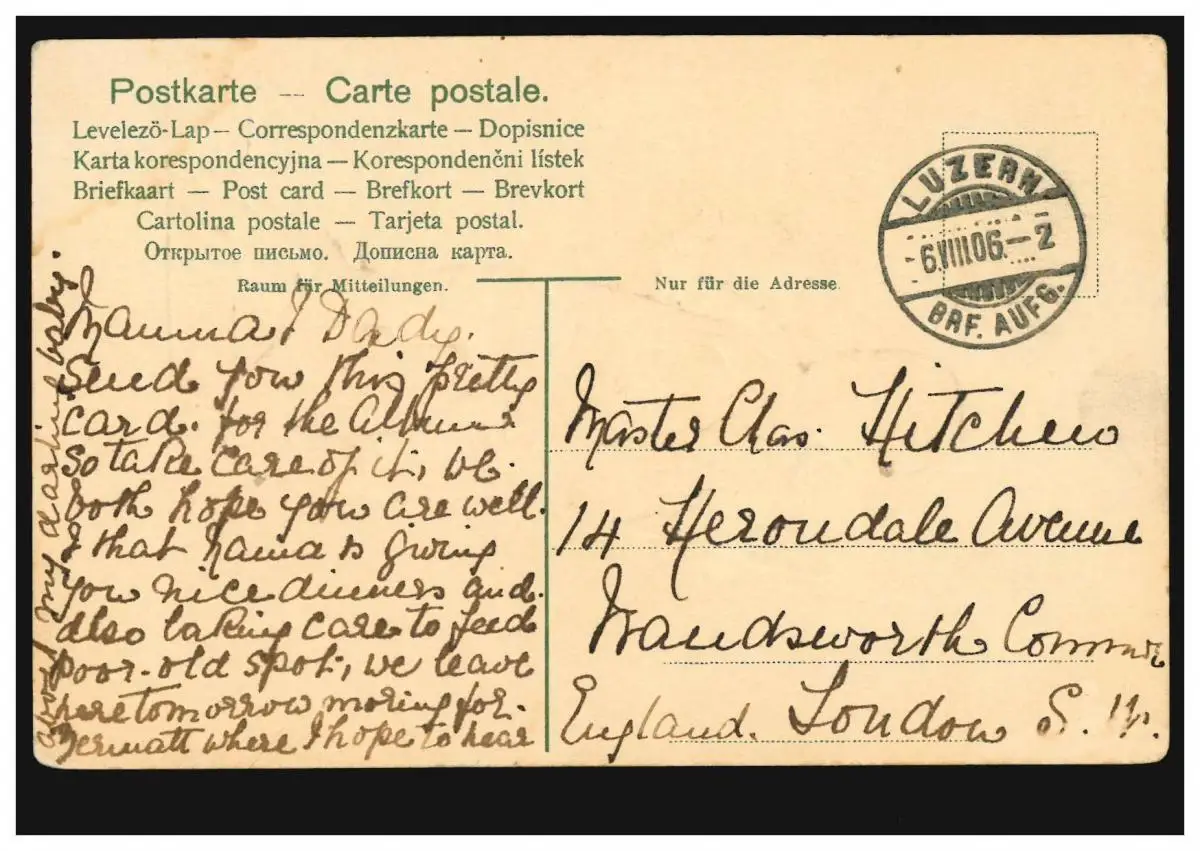 Postkarte — Carte postale.
Levelezö-Lap — Correspondenzkarte — Dopisnice
Karta korespondencyjna — Korespondenčni lístek
Briefkaart — Post card — Brefkort — Brevkort
Cartolina postale — Tarjeta postal.
Открытое письмо. Дописна карта.
Raum für Mitteilungen.
Nur für die Adresse
LUZERN
6.VIII.06.–2
BRF. AUFG.
Mamma & Dady.
Send you this pretty
card. for the Album
so take care of it, we
both hope you are well.
& that Nana is giving
you nice dinners and.
also taking care to feed
poor old spot, we leave
here tomorrow morning for.
Zermatt where I hope to hear
my darling baby.
Master Chas. Hitchen
14 Herondale Avenue
Wandsworth Common
England. London S. W.